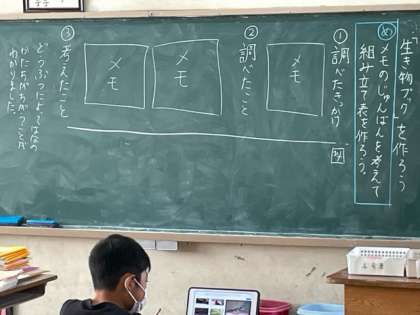 「生き物ブック」を作ろう
め メモのじゅんばんを考えて
組み立て表を作ろう。
① 調べたきっかけ
メモ
② 調べたこと
メモ
メモ
③ 考えたこと
どうぶつによってはなの
かたちがちがうことが
わかりました。